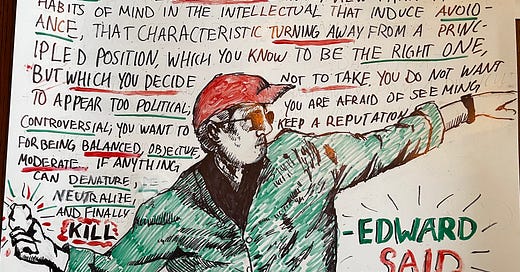 HABITS OF MIND IN THE INTELLECTUAL THAT INDUCE AVOID-
ANCE, THAT CHARACTERISTIC TURNING AWAY FROM A PRINC-
IPLED POSITION, WHICH YOU KNOW TO BE THE RIGHT ONE,
BUT WHICH YOU DECIDE NOT TO TAKE. YOU DO NOT WANT
TO APPEAR TOO POLITICAL; YOU ARE AFRAID OF SEEMING
CONTROVERSIAL; YOU WANT TO KEEP A REPUTATION
FOR BEING BALANCED, OBJECTIVE
MODERATE... IF ANYTHING
CAN DENATURE,
NEUTRALIZE,
AND FINALLY
KILL
-EDWARD
SAID